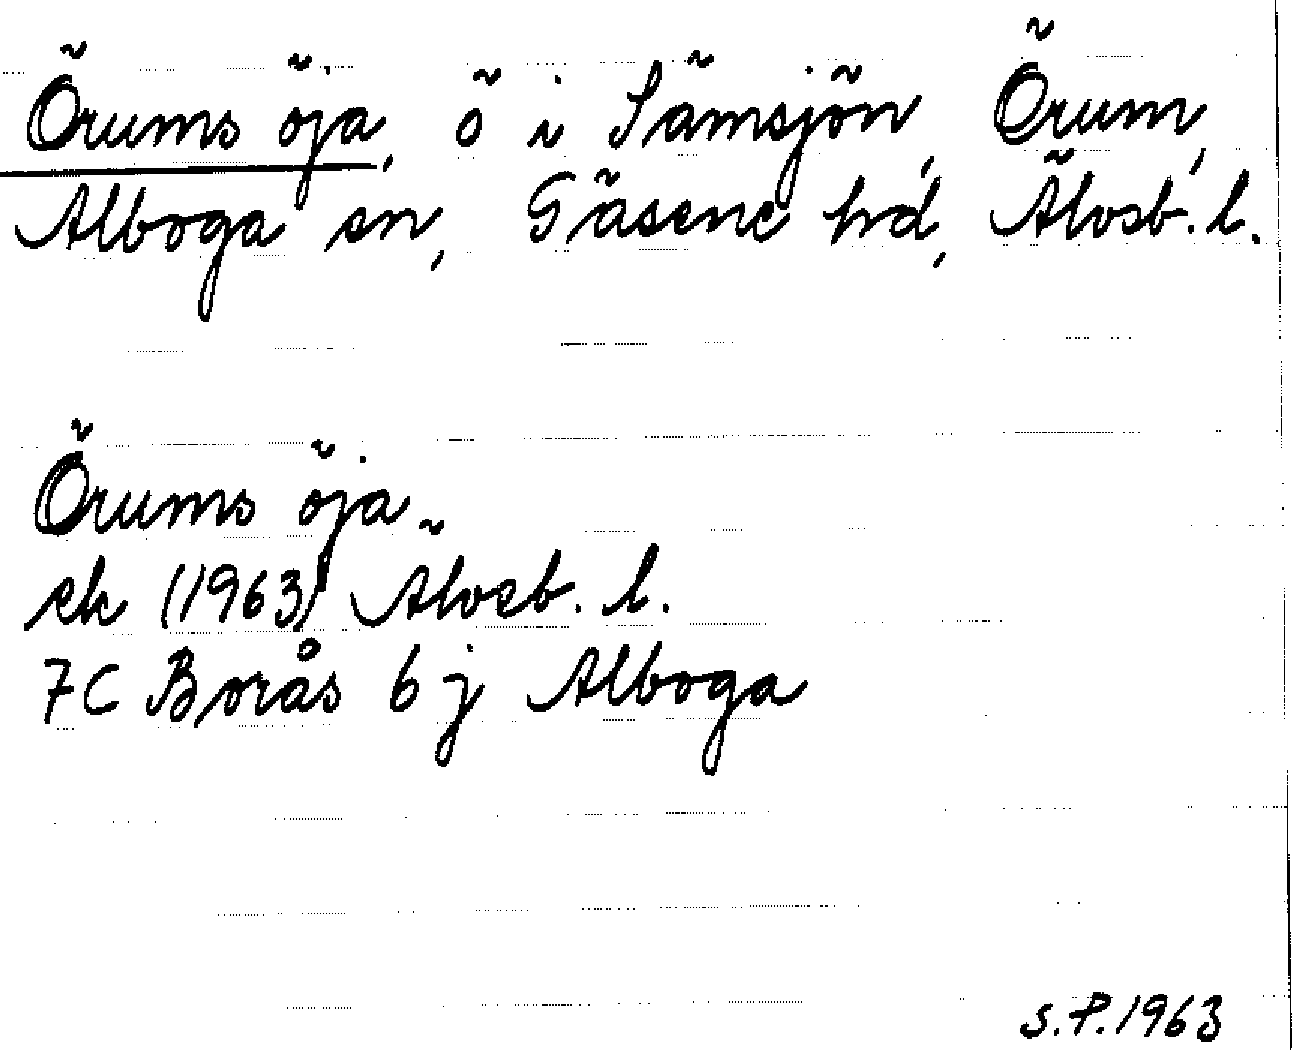 Örums öja, ö i Sämsjön, Örum,
Alboga sn, Gäsene hd, Älvsb. l.
Örums öja
ek (1963) Älvsb. l.
7C Borås 6 j Alboga
S.P. 1963